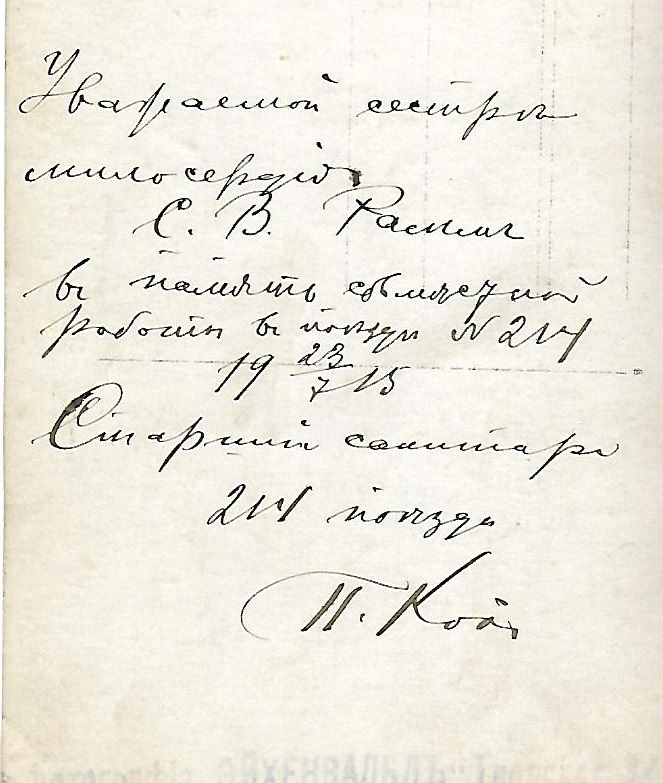 Уважаемой сестрѣ
милосердія
С. В.
въ память совмѣстной
работы въ поѣздѣ № 214
19 23/7 15
Старшій санитаръ
214 поѣзда
П.
ЭЙХЕНВАЛЬДЪ"